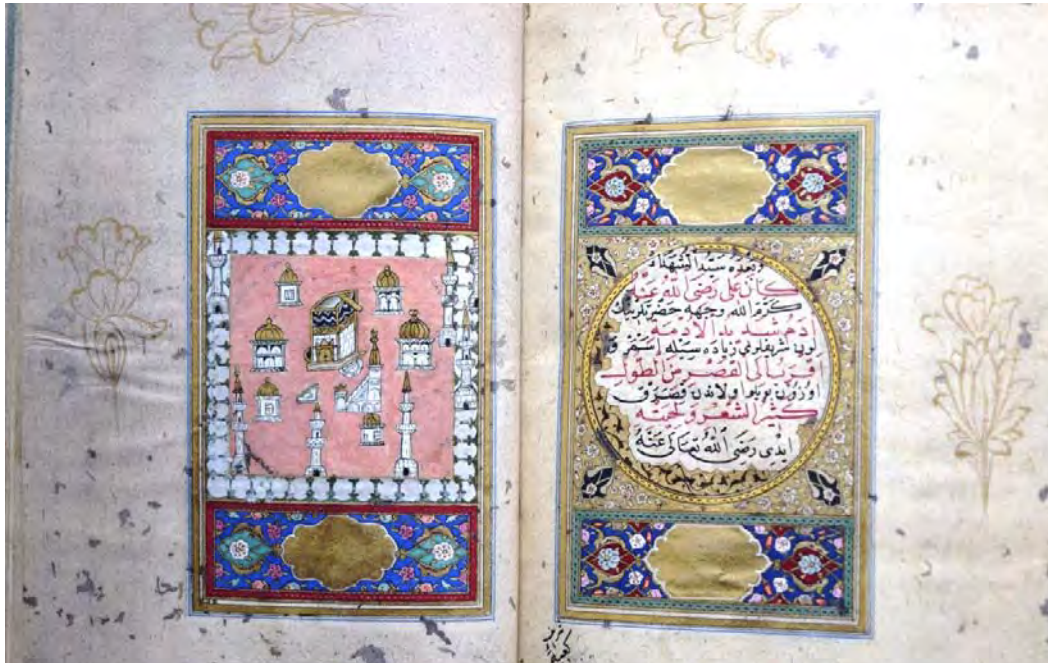 وبعده سيد الشهداء
كان علي رضي الله عنه
كرم الله وجهه حضرتلرينك
ادم شديد الادمة
لون شريفلرى زياده سيله اسمر
اقرب الى القصر من الطول
اولاندن
كثير الشعر و لحيته
ايدى رضي الله تعالى عنه